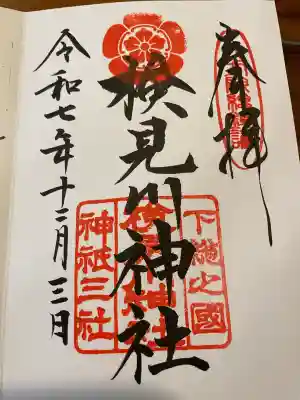 奉拝
検見川神社
下總之國
神祇三社
令和七年十二月三日